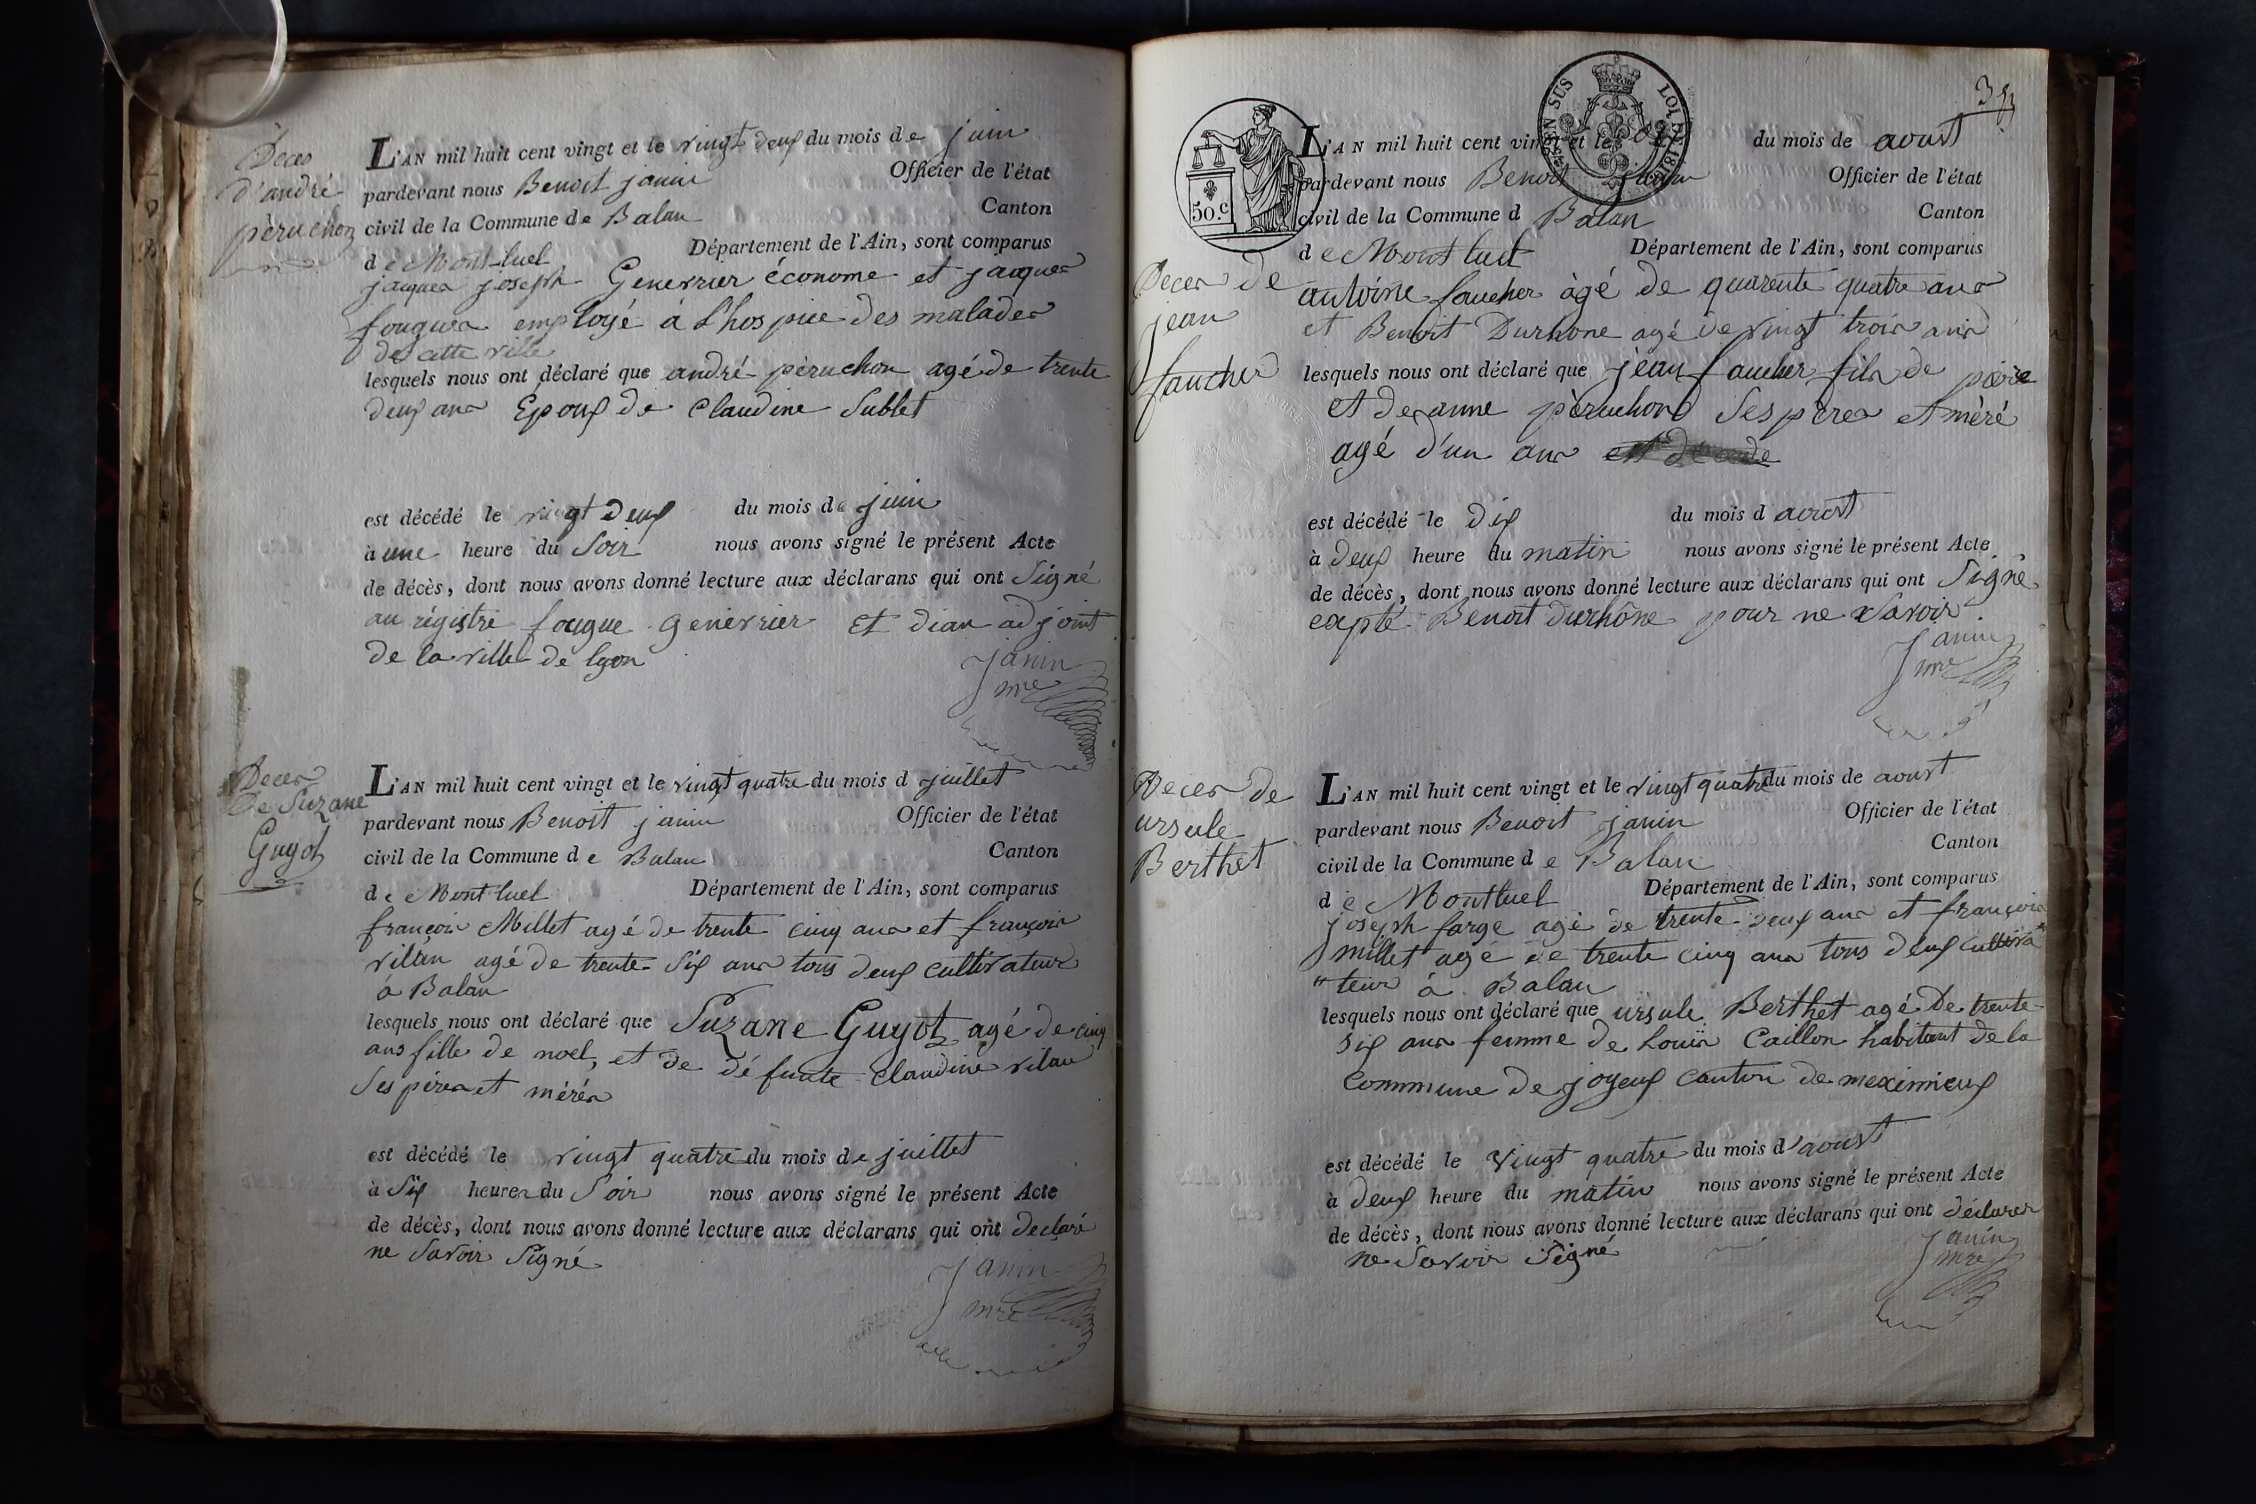 Deces
d'andré
pèruchon
L'AN mil huit cent vingt et le vingt deux du mois de juin
pardevant nous Benoit janin Officier de l'état
civil de la Commune de Balan Canton
de Mont-luel Département de l'Ain, sont comparus
jaques joseph Genevrier économe et jaques
fougues employé á L'hospice des malades
de cette ville
lesquels nous ont déclaré que andré pèruchon agé de trente
deux ans Epoux de Claudine Sublet
est décédé le vingt deux du mois de juin
à une heure du Soir nous avons signé le présent Acte
de décès, dont nous avons donné lecture aux déclarans qui ont Signé
au régistre fougue Genevrier Et dian adjoint
De la ville de lyon
janin
mre
Deces
De Suzane
Guyot
L'AN mil huit cent vingt et le vingt quatre du mois d juillet
pardevant nous Benoit janin Officier de l'état
civil de la Commune de Balan Canton
de Mont luel Département de l'Ain, sont comparus
françois Millet agé de trente cinq ans et françois
villan agé de trente Six ans tous deux cultivateur
a Balan
lesquels nous ont déclaré que Suzane Guyot agé de cinq
ans fille de noel, et de défunte Claudine vilan
Ses péres et méres
est décédé le vingt quatre du mois de juillet
à Six heures du Soir nous avons signé le présent Acte
de décès, dont nous avons donné lecture aux déclarans qui ont declaré
ne Savoir Signé
janin
mre
35
TIMB. EN SUS LOI DE 1816
50.c
Deces de
jean
faucher
L'AN mil huit cent vingt et le dix du mois de aoust
pardevant nous Benoit janin Officier de l'état
civil de la Commune d Balan Canton
de Mont luel Département de l'Ain, sont comparus
antoine faucher àgé de quarente quatre ans
et Benoit Durhone agé de vingt trois ans
lesquels nous ont déclaré que jéan faucher fils de pierre
et de anne pèruchon Ses pères et mèré
agé d'un ans est décédé
est décédé le dix du mois d aoust
à deux heure du matin nous avons signé le présent Acte
de décès, dont nous avons donné lecture aux déclarans qui ont Signé
exapté Benoit durhône pour ne Savoir
janin
mre
Deces de
ursule
Berthet
L'AN mil huit cent vingt et le vingt quatre du mois de aoust
pardevant nous Benoit janin Officier de l'état
civil de la Commune de Balan Canton
de Montluel Département de l'Ain, sont comparus
joseph farge agé de trente-deux ans et françois
millet agé de trente cinq ans tous deux cultiva
"teur á Balan
lesquels nous ont déclaré que ursule Berthet agé De trente
Six ans femme de Louis Caillon habitant de la
Commune de joyeux canton de meximieux
est décédé le vingt quatre du mois d'aoust
à deux heure du matin nous avons signé le présent Acte
de décès, dont nous avons donné lecture aux déclarans qui ont déclarer
ne Savoir Signé
janin
mre